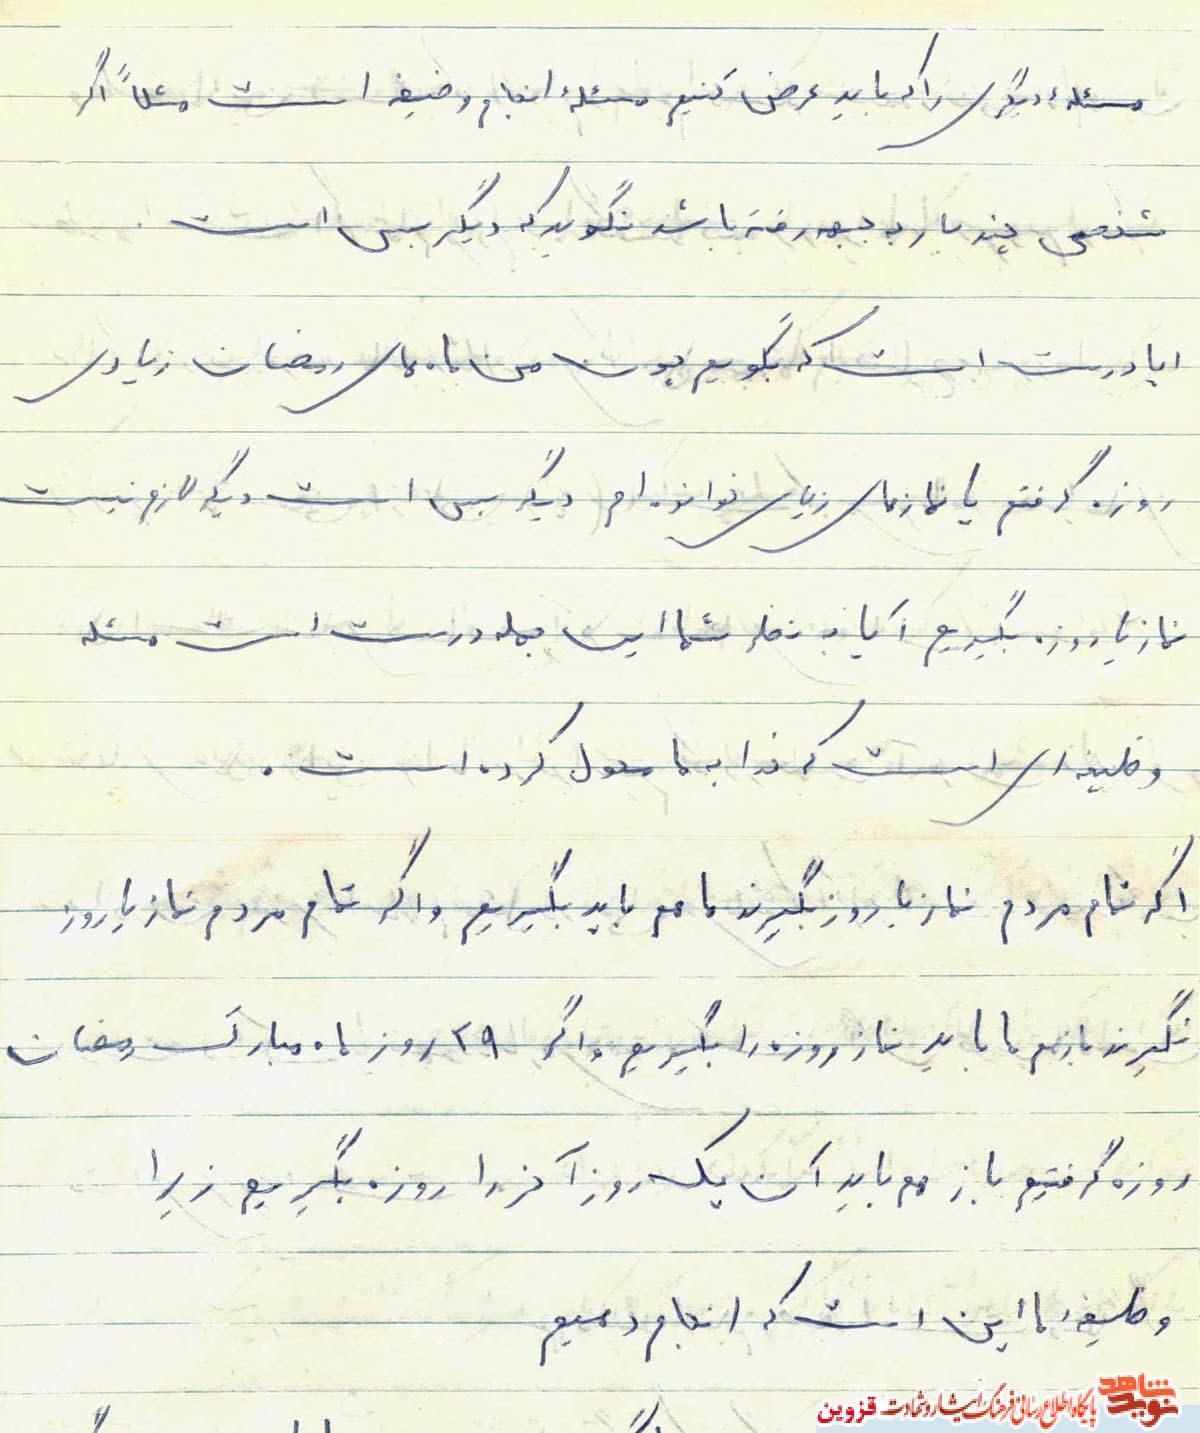 مسئله دیگری را که باید عرض کنیم مسئله انجام وضیفه است مثلاً اگر
شخصی چند بار به جبهه رفته باشد نگوید که دیگر بس است .
ایا درست است که بگویم چون من ماه های رمضان زیادی
روزه گرفتم یا نمازهای زیادی خوانده ام دیگر بس است دیگر لازم نیست
نماز یا روزه بگیریم آیا به نظر شما این جمله درست است مسئله
وظیفه ای است که خدا به ما محول کرده است .
اگر تمام مردم نماز یا روز بگیرند ما هم باید بگیریم و اگر تمام مردم نماز یا روز
نگیرند بازهم ما باید نماز روزه را بگیریم و اگر ۲۹ روز ماه مبارک رمضان
روزه گرفتیم باز هم باید آن یک روز آخر را روزه بگیریم زیرا
وظیفه ما این است که انجام دهیم
نوید شاهد
پایگاه اطلاع رسانی فرهنگ ایثار و شهادت قزوین